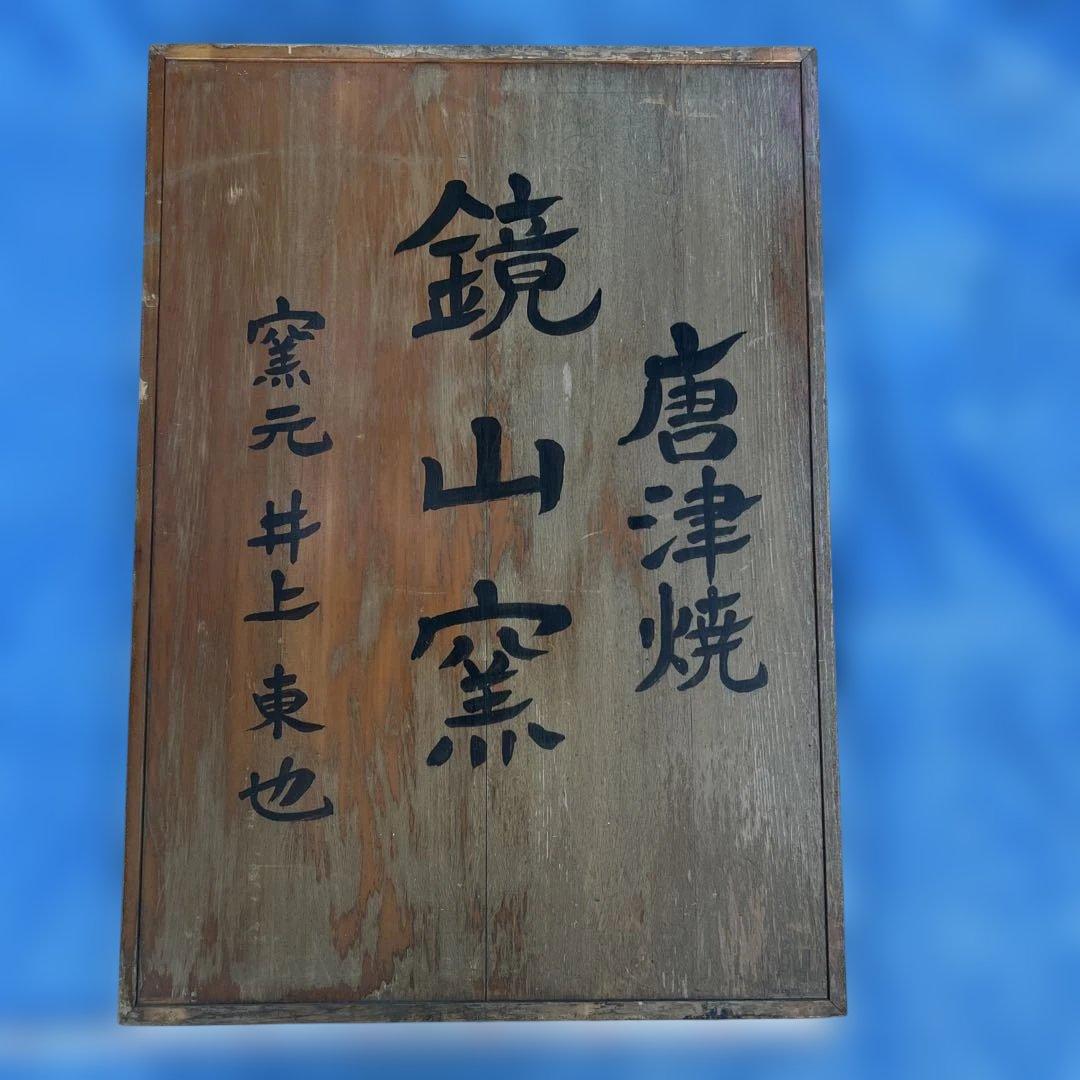 唐津焼
鏡山窯
窯元 井上東也